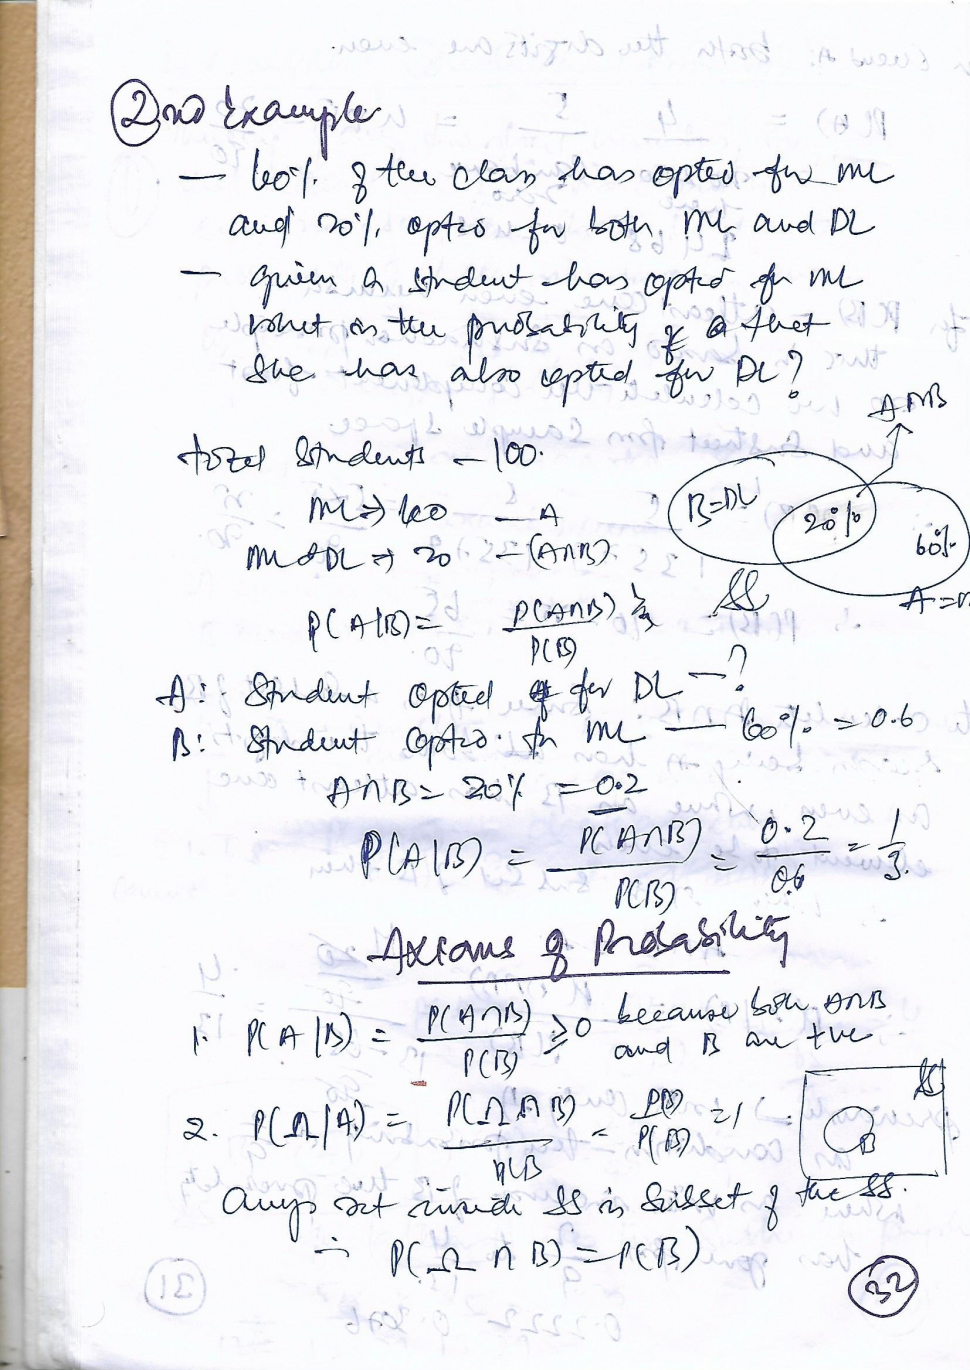 2nd Example
— 60% of the class has opted for ML
and 20% opted for both ML and DL
— given a student has opted for ML
what is the probability of that
she has also opted for DL?
A∩B
total Students – 100.
ML ⇒ 60 – A
B=DL
20%
60%
ML & DL ⇒ 20 – (A∩B)
SS
P(A|B) = P(A∩B) / P(B)
A: Student opted for DL – ?
B: Student opted for ML — 60% = 0.6
A∩B = 20% = 0.2
P(A|B) = P(A∩B) / P(B) = 0.2 / 0.6 = 1/3.
Axioms of Probability
1. P(A|B) = P(A∩B) / P(B) ≥ 0 because both A∩B
and B are +ve
SS
B
2. P(Ω|A) = P(Ω∩B) / P(B = P(B) / P(B) = 1
Any set inside SS is subset of the SS.
∴ P(Ω ∩ B) = P(B)
31
32